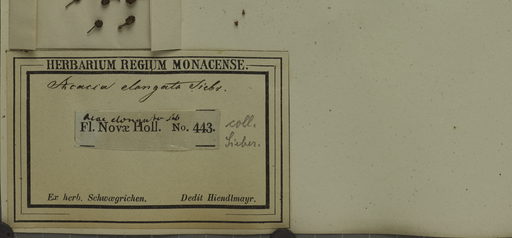 HERBARIUM REGIUM MONACENSE.
Acacia elongata Sieb.
Acac elongata Sieb
Fl. Novæ Holl. No. 443.
coll.
Sieber.
Ex herb. Schwægrichen. Dedit Hiendlmayr.